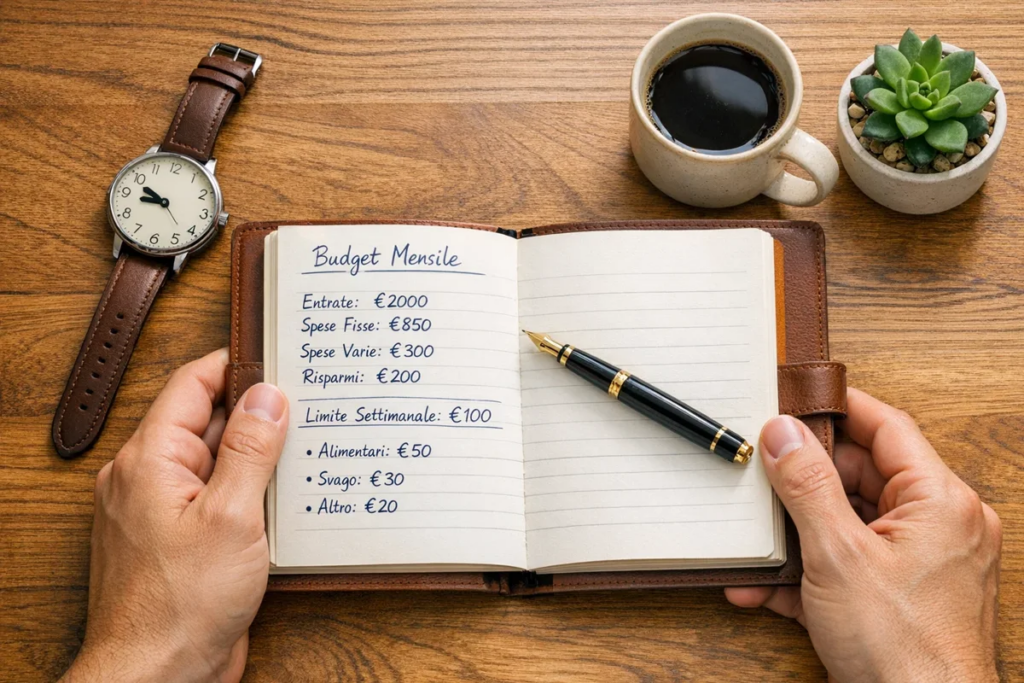 Budget Mensile
Entrate: €2000
Spese Fisse: €850
Spese Varie: €300
Risparmi: €200
Limite Settimanale: €100
• Alimentari: €50
• Svago: €30
• Altro: €20